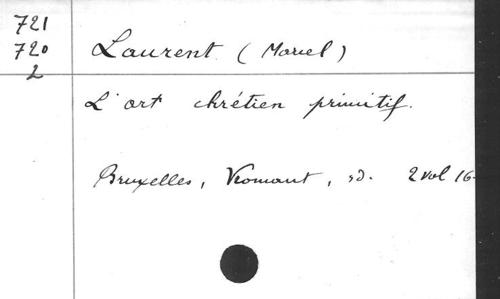 721
720
2
Laurent (Marcel)
L'art chrétien primitif.
Bruxelles, Vromant, sd. 2 vol 16